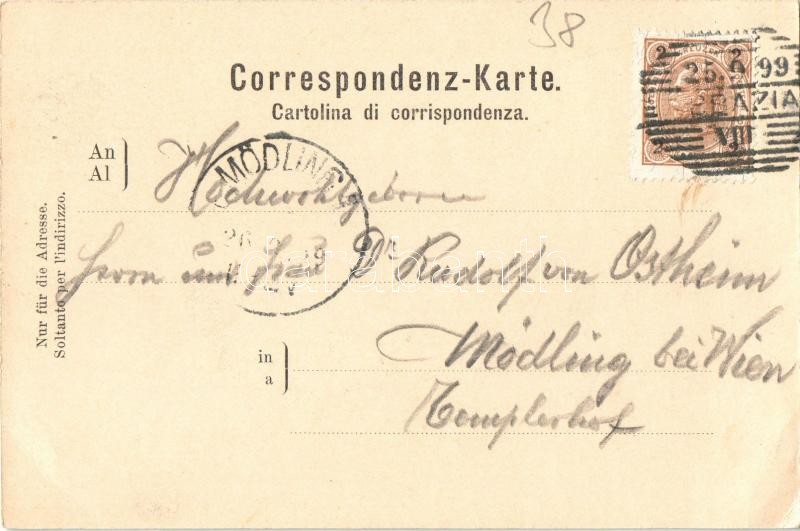 38
Correspondenz-Karte.
Cartolina di corrispondenza.
2 KREUZER 2
25. 9. 99
GRAZIA
VIII
2 2
An
Al
MÖDLING
26 9 99
Hochwohlgeboren
Herrn und Frau Dr Rudolf von Ostheim
in
a
Mödling bei Wien
Templerhof
Nur für die Adresse.
Soltanto per l'indirizzo.
darabanth